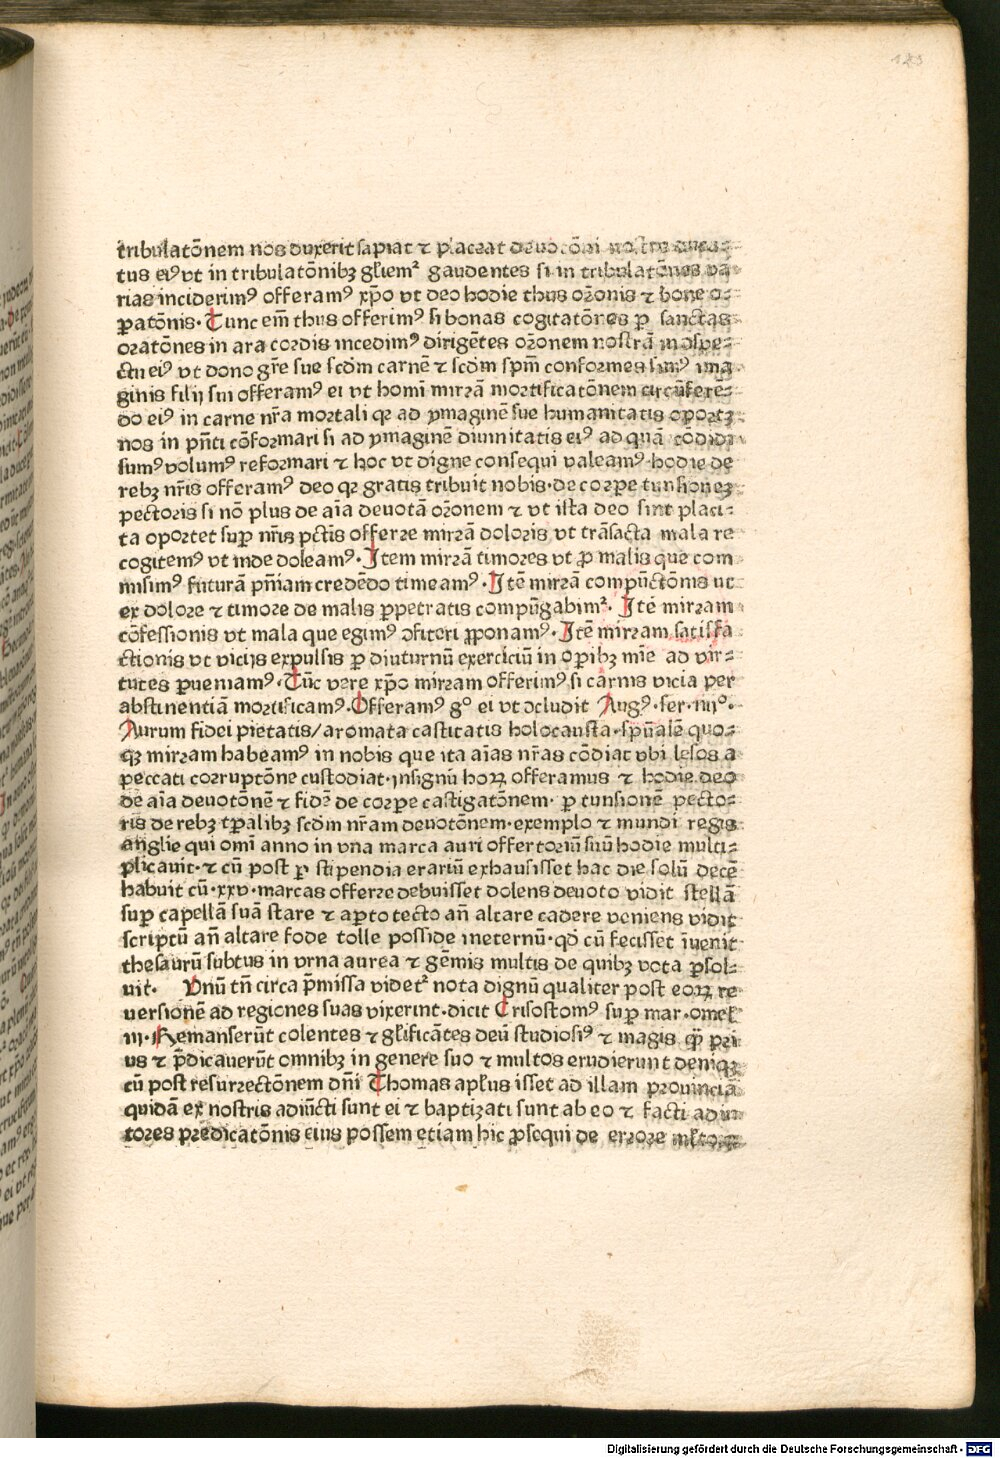 123
tribulatōnem nos duxerit sapiat ⁊ placeat deuocōni nostre
tus eiꝰ vt in tribulatōnibꝫ gl̄iemᷣ gaudentes si in tribulatōnes va
rias inciderimꝰ offeramꝰ xp̄o vt deo hodie thus oꝛōnis ⁊ bone o⸗
ꝑatōnis. Tunc em̄ thus offerimꝰ si bonas cogitatōnes ꝑ sanctas
oꝛatōnes in ara coꝛdis incedimꝰ dirigētes oꝛōnem nostrā in ↄspe⸗
ctu eiꝰ vt dono gr̄e sue scd̄m carnē ⁊ scd̄m spm̄ conformes simꝰ ima
ginis filij sui offeramꝰ ei vt homī mirrā mortificatōnem circūferē⸗
do eiꝰ in carne nr̄a mortali qꝛ ad ymaginē sue humanitatis opoꝛtꝫ
nos in pn̄ti cōformari si ad ymaginē diuinitatis eiꝰ ad quā cōditi
sumꝰ volumꝰ reformari ⁊ hoc vt digne consequi valeamꝰ hodie de
rebꝫ nr̄is offeramꝰ deo qꝛ gratis tribuit nobis. de coꝛpe tunsionem
pectoꝛis si nō plus de aīa deuotā oꝛōnem ⁊ vt ista deo sint placi⸗
ta opoꝛtet suꝑ nr̄is pctīs offerre mirrā doloꝛis vt trāsacta mala re
cogitemꝰ vt inde doleamꝰ. Item mirrā timoꝛes vt ꝓ malis que com
misimꝰ futurā pn̄iam credēdo timeamꝰ. Itē mirrā compūctōnis vt
ex dolore ⁊ timore de malis ꝑpetratis compūgabimᷣ. Itē mirram
cōfessionis vt mala que egimꝰ ↄfiteri ꝓponamꝰ. Itē mirram satisfa
ctionis vt vicijs expulsis ꝑ diuturnū exerciciū in oꝑibꝫ mīe ad vir⸗
tutes ꝑueniamꝰ. Tūc vere xp̄o mirram offerimꝰ si carnis vicia per
abstinentiā mortificamꝰ. Offeramꝰ gͦ ei vt ↄcludit Augꝰ. ser. iiijͦ.
Aurum fidei pietatis/aromata castitatis holocausta. spūalē quo⸗
qꝫ mirram habeamꝰ in nobis que ita aīas nr̄as cōdiat vbi lesos a
peccati coꝛruptōne custodiat. insignū hoꝝ offeramus ⁊ hodie deo
de aīa deuotōnē ⁊ fidē de coꝛpe castigatōnem. ꝑ tunsionē pecto⸗
ris de rebꝫ tꝑalibꝫ scd̄m nr̄am deuotōnem. exemplo ⁊ mundi regis
anglie qui omī anno in vna marca auri offertoriū suū hodie multi⸗
plicauit. ⁊ cū post ꝑ stipendia erariū exhausisset hac die solū decē
habuit cū. xxv. marcas offerre debuisset dolens deuoto vidit stellā
suꝑ capellā suā stare ⁊ aꝑto tecto an̄ altare cadere veniens vidit
scriptū an̄ altare fode tolle posside ineternū. qd̄ cū fecisset īuenit
thesaurū subtus in vrna aurea ⁊ gēmis multis de quibꝫ vota ꝑsol⸗
uit. Vnū tn̄ circa p̄missa videtᷣ nota dignū qualiter post eoꝝ re
uersionē ad regiones suas vixerint. dicit Crisostomꝰ suꝑ mar. omel
iij. Remanserūt colentes ⁊ gl̄ificātes deū studiosiꝰ ⁊ magis qꝫ pri
us ⁊ p̄dicauerūt omnibꝫ in genere suo ⁊ multos erudierunt deniqꝫ
cū post resurrectōnem dn̄i Thomas apl̄us isset ad illam prouinciā
quidā ex nostris adiūcti sunt ei ⁊ baptizati sunt ab eo ⁊ facti adiu
tores predicatōnis eius possem etiam hic ꝓsequi de errore
Digitalisierung gefördert durch die Deutsche Forschungsgemeinschaft - DFG